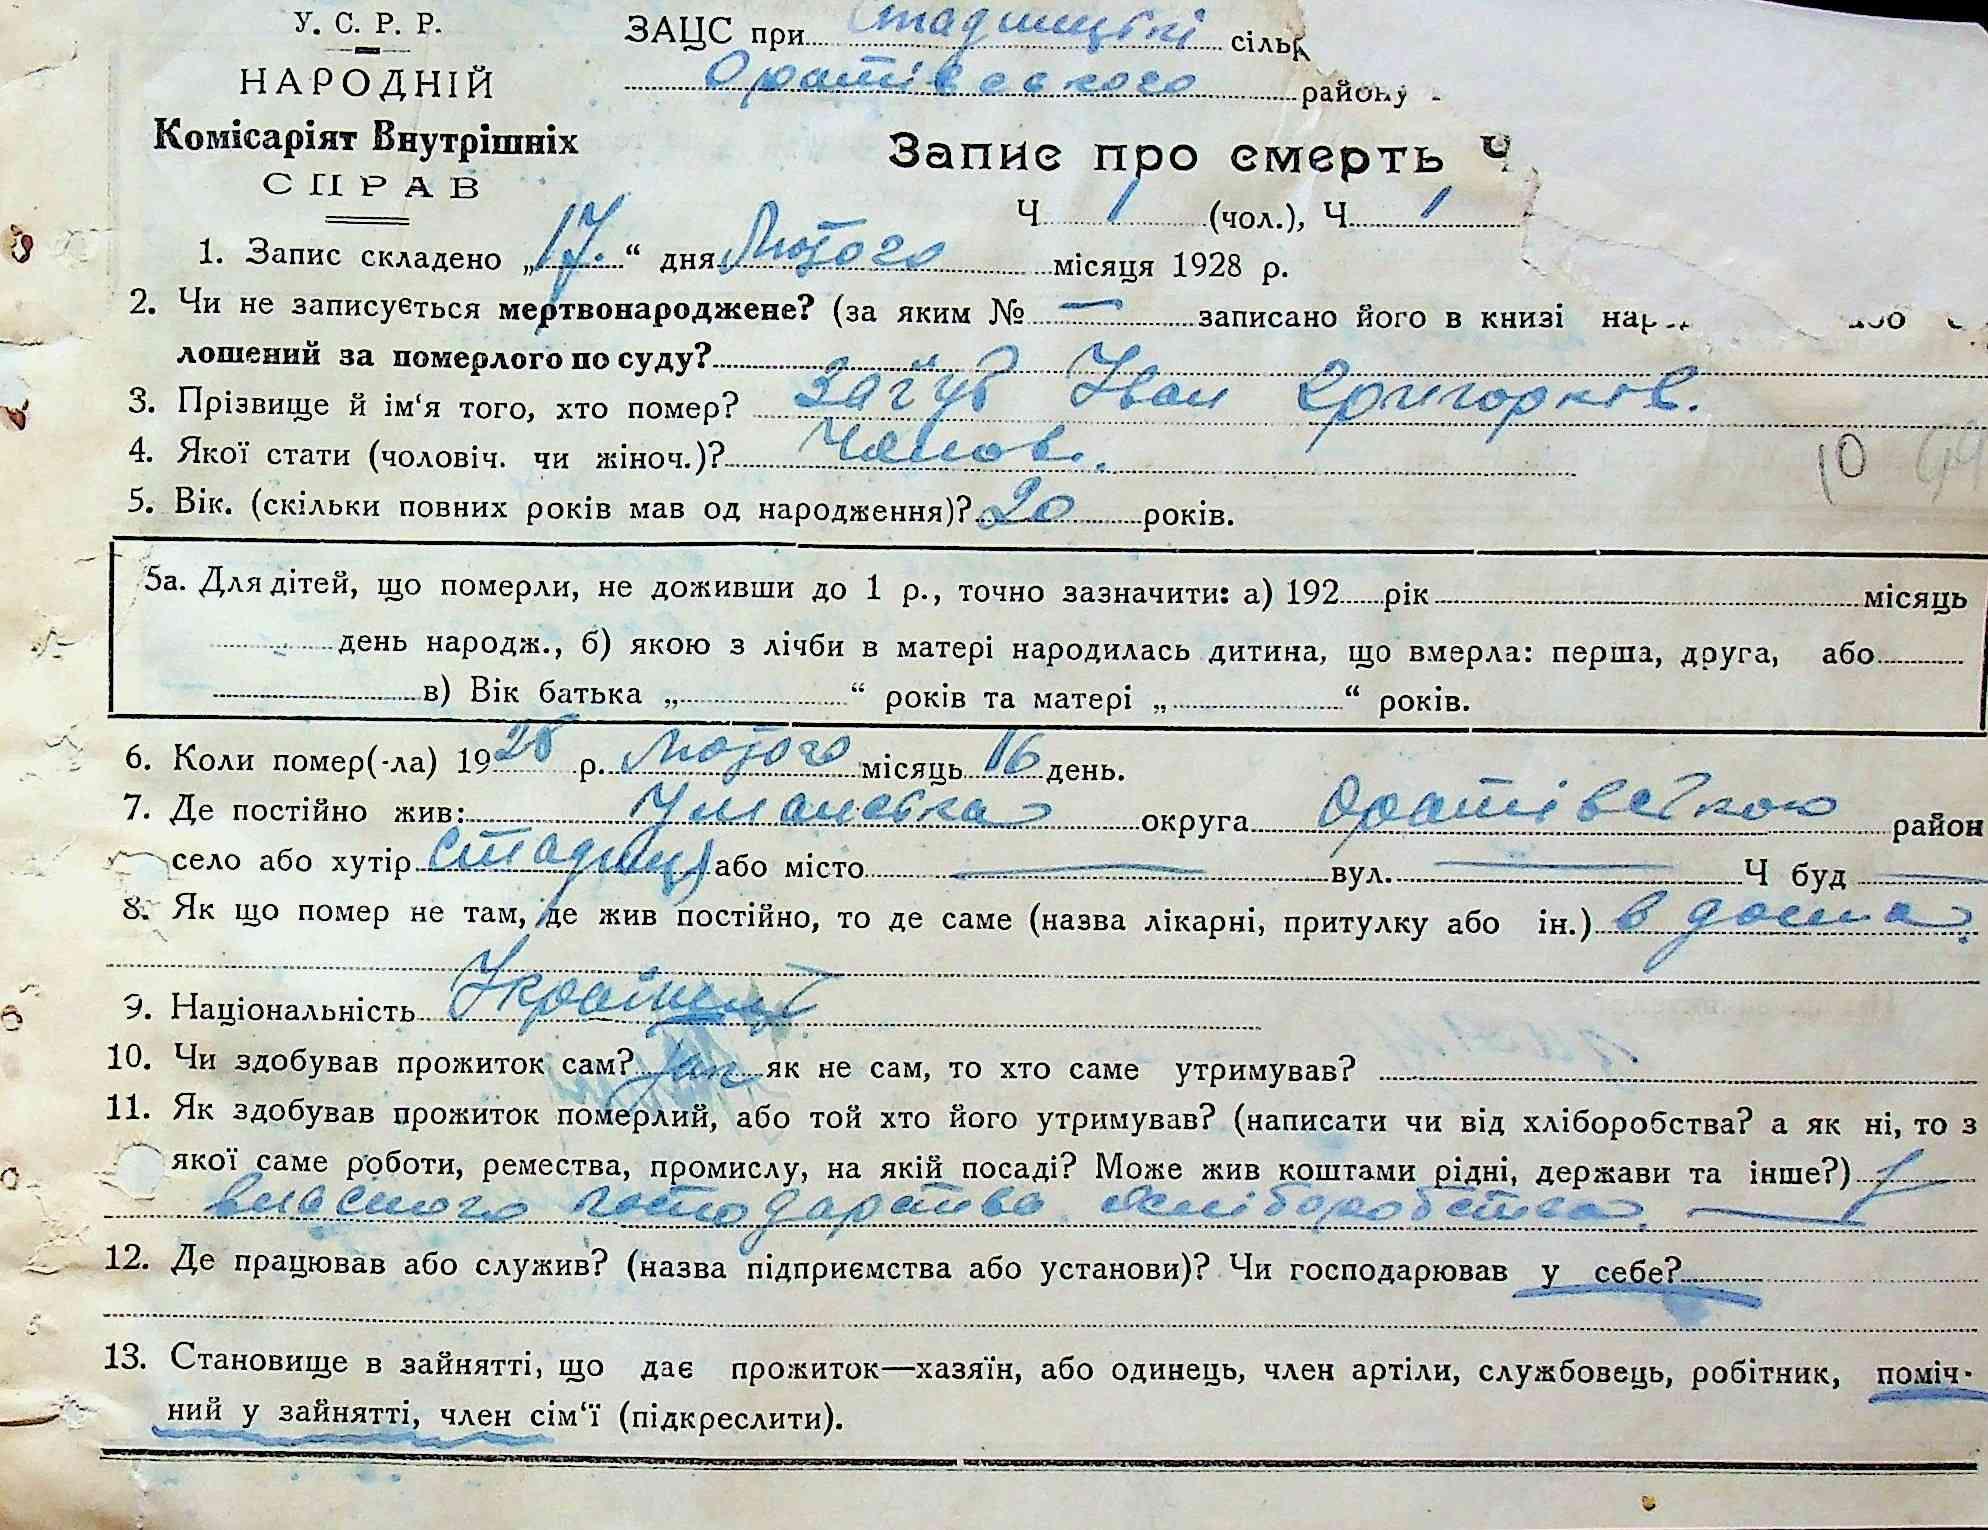 У. С. Р. Р.
НАРОДНІЙ
Комісаріят Внутрішніх
СПРАВ
ЗАЦС при Стадницькі сіль
Оратівського району
Запис про смерть Ч
Ч 1 (чол.), Ч 1
1. Запис складено „17.“ дня Лютого місяця 1928 р.
2. Чи не записується мертвонароджене? (за яким № — записано його в книзі нар
лошений за померлого по суду?
3. Прізвище й ім‘я того, хто помер? Іван Григорків.
4. Якої стати (чоловіч. чи жіноч.)? Чолов.
5. Вік. (скільки повних років мав од народження)? 20 років.
10
5а. Для дітей, що померли, не доживши до 1 р., точно зазначити: а) 192 рік місяць
день народж., б) якою з лічби в матері народилась дитина, що вмерла: перша, друга, або
в) Вік батька „ “ років та матері „ “ років.
6. Коли помер(-ла) 1928 р. Лютого місяць 16 день.
7. Де постійно жив: Уманська округа Оратівською район
село або хутір Стадниця або місто — вул. — Ч буд —
8. Як що помер не там, де жив постійно, то де саме (назва лікарні, притулку або ін.) в дома.
9. Національність Українець
10. Чи здобував прожиток сам? сам як не сам, то хто саме утримував?
11. Як здобував прожиток померлий, або той хто його утримував? (написати чи від хліборобства? а як ні, то з
якої саме роботи, ремества, промислу, на якій посаді? Може жив коштами рідні, держави та інше?) з
власного господарства хліборобства.
12. Де працював або служив? (назва підприємства або установи)? Чи господарював у себе?
13. Становище в зайнятті, що дає прожиток—хазяїн, або одинець, член артіли, службовець, робітник, поміч-
ний у зайнятті, член сім‘ї (підкреслити).